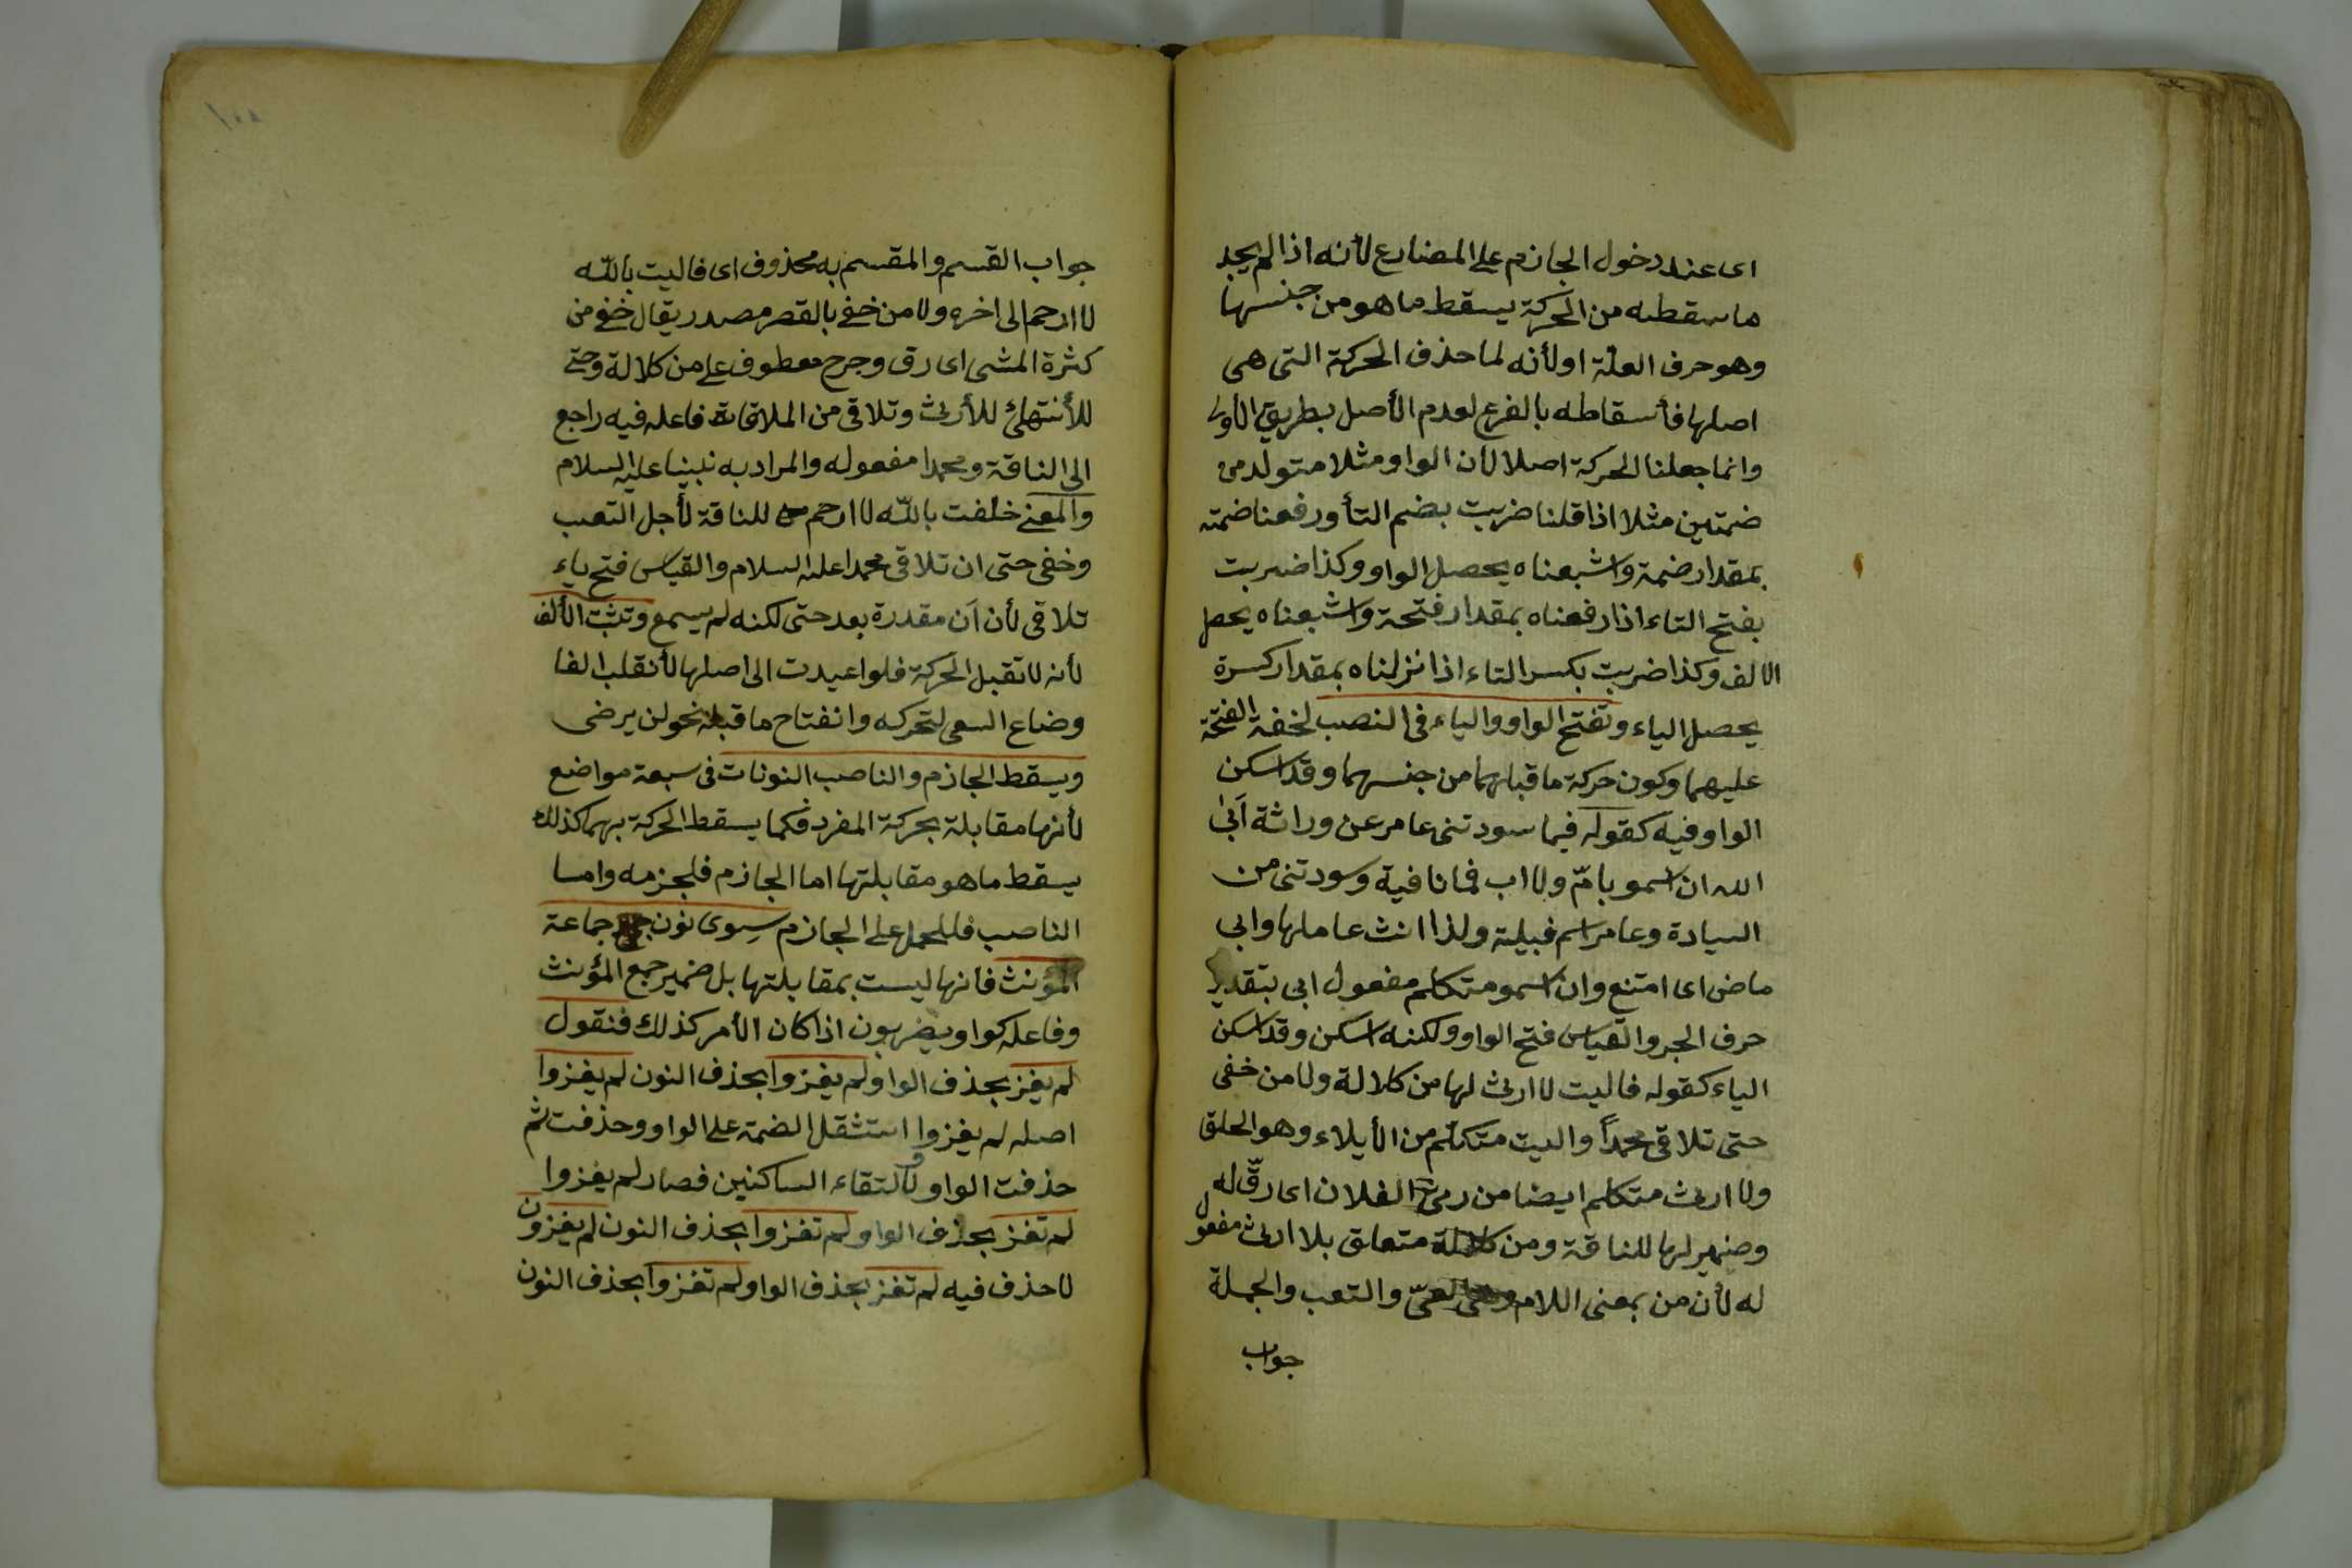 اى عند دخول الجازم على المضارع لأنه اذا لم يجد
ما سقطه من الحركة يسقط ما هو من جنسها
وهو حرف العلة اولأنه لما حذف الحركة التى هى
اصلها فأسقاطه بالفرع لعدم الأصل بطريق الأولى
وانما جعلنا الحركة اصلا لان الواو مثلا متولد من
ضمتين مثلا اذا قلنا ضربت بضم التأ ورفعنا ضمته
بمقدار ضمة واشبعناه يحصل الواو وكذا ضربت
بفتح التاء اذا رفعناه بمقدار فتحة واشبعناه يحصل
الالف وكذا ضربت بكسر التاء اذا نزلناه بمقدار كسرة
يحصل الياء وتفتح الواو والياء فى النصب لخفة الفتحة
عليهما وكون حركة ما قبلهما من جنسهما وقد اسكن
الواو فيه كقوله فيما سودتنى عامر عن وراثة آبى
الله ان اسمو بامّ ولا اب فما نافية وسودتنى من
السيادة وعامر اسم قبيلة ولذا انث عاملها وابى
ماض اى امتنع وان اسمو متكلم مفعول ابى بتقدير
حرف الجر والقياس فتح الواو ولكنه اسكن وقد اسكن
الياء كقوله فاليت لا ارثى لها من كلالة ولا من خفى
حتى تلاقى محمداً واليت متكلم من الأيلاء وهو الحلق
ولا ارثى متكلم ايضا من رمى الفلان اى رقّ له
وضمير لها للناقة ومن كلالة متعلق بلا ارثى مفعول
له لأن من بمعنى اللام وهى العىّ والتعب والجملة
جواب
جواب القسم والمقسم به محذوف اى فاليت بالله
لا ارحم الى اخره ولا من خفى بالقصر مصدر يقال خفى من
كثرة المشى اى رق وجرح معطوف على من كلالة وحتى
للأنتهائ للأرثى وتلاقى من الملاقاة فاعله فيه راجع
الى الناقة ومحمدا مفعوله والمراد به نبينا عليه السلام
والمعنى خلفت بالله لا ارحم للناقة لأجل التعب
وخفى حتى ان تلاقى محمدا عليه السلام والقياس فتح ياء
تلاقى لأن آن مقدرة بعد حتى لكنه لم يسمع وتثبت الألف
لأنه لا تقبل الحركة فلو اعيدت الى اصلها لأنقلب الفا
وضاع السعى لتحركه وانفتاح ما قبله نحو لن يرضى
ويسقط الجازم والناصب النونات فى سبعة مواضع
لأنها مقابلة بحركة المفرد فكما يسقط الحركة بهما كذلك
يسقط ما هو مقابلتها اما الجازم فلجزمه واما
الناصب فللحمل على الجازم سوى نون جماعة
المؤنث فانها ليست بمقابلتها بل ضمير جمع المؤنث
وفاعله كواو يضربون اذا كان الأمر كذلك فنقول
لم يغز بحذف الواو لم يغزوا بحذف النون لم يغزوا
اصله لم يغزوا استثقل الضمة على الواو وحذفت ثم
حذفت الواو لألتقاء الساكنين فصار لم يغزوا
لم تغز بحذف الواو لم تغزوا بحذف النون لم يغزون
لا حذف فيه لم تغز بحذف الواو لم تغزوا بحذف النون